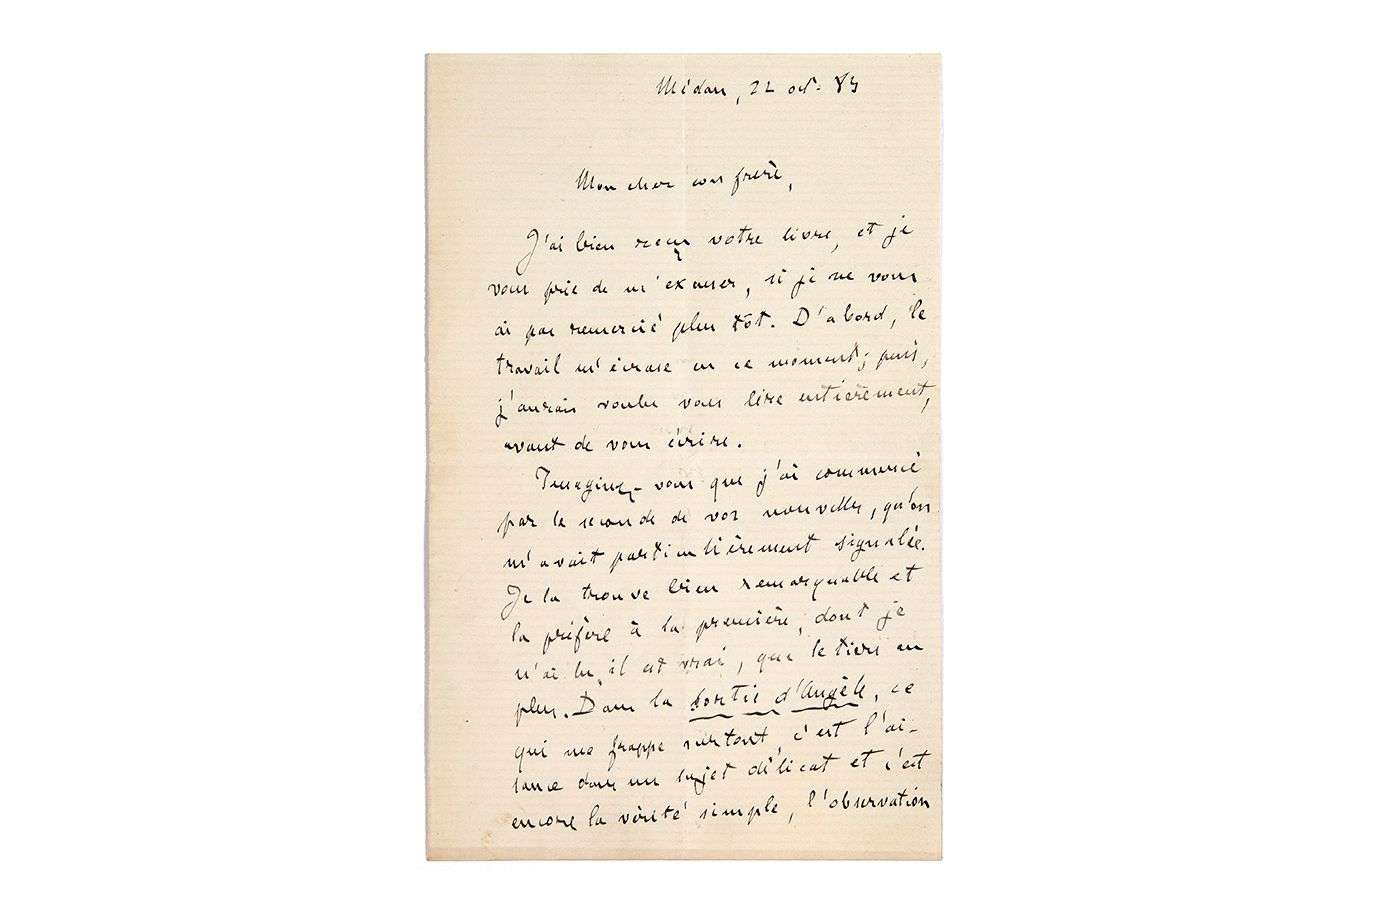 Médan, 22 oct. 83
Mon cher confrère,
J'ai bien reçu votre livre, et je
vous prie de m'excuser, si je ne vous
ai pas remercié plus tôt. D'abord, le
travail m'écrase en ce moment; puis,
j'aurais voulu vous lire entièrement,
avant de vous écrire.
Imaginez-vous que j'ai commencé
par la seconde de vos nouvelles, qu'on
m'avait particulièrement signalée.
Je la trouve bien remarquable et
la préfère à la première, dont je
n'ai lu, il est vrai, que le tiers au
plus. Dans la Sortie d'Angèle, ce
qui me frappe surtout, c'est l'ai-
sance dans un sujet délicat et c'est
encore la vérité simple, l'observation